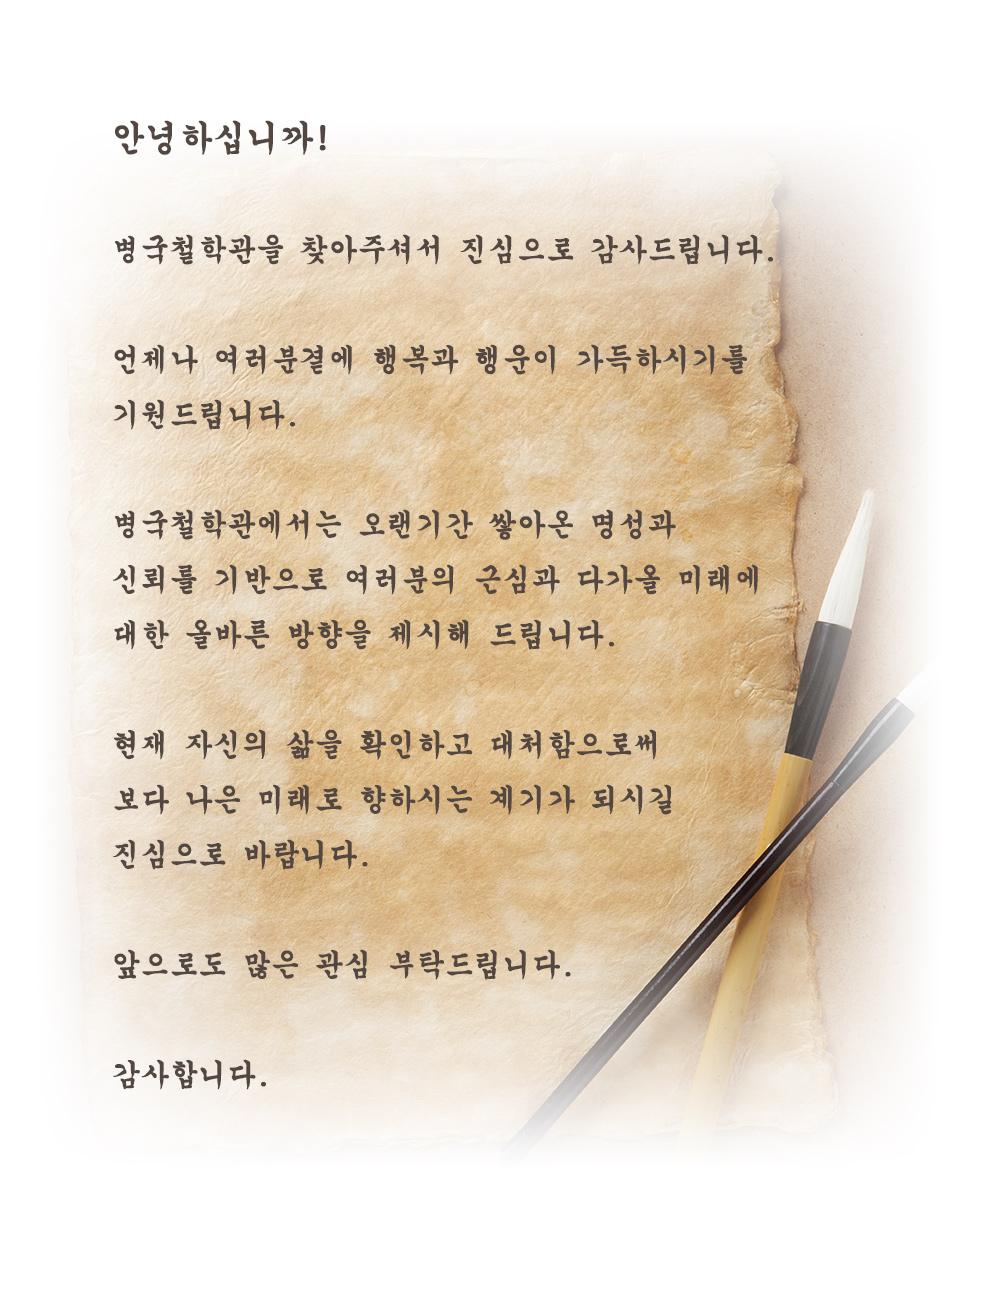 안녕하십니까!
병국철학관을 찾아주셔서 진심으로 감사드립니다.
언제나 여러분곁에 행복과 행운이 가득하시기를
기원드립니다.
병국철학관에서는 오랜기간 쌓아온 명성과
신뢰를 기반으로 여러분의 근심과 다가올 미래에
대한 올바른 방향을 제시해 드립니다.
현재 자신의 삶을 확인하고 대처함으로써
보다 나은 미래로 향하시는 계기가 되시길
진심으로 바랍니다.
앞으로도 많은 관심 부탁드립니다.
감사합니다.